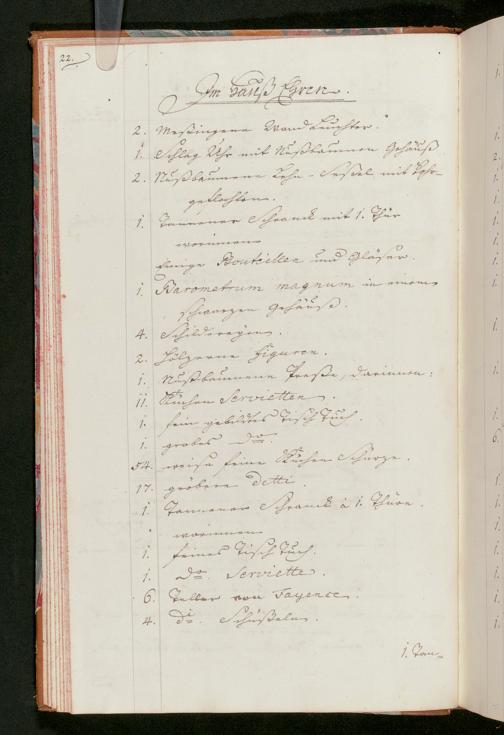 22.
Im Hauß Ehren.
2. Meßingene Wand Leuchter.
1. Schlag Uhr mit Nußbaumen Gehäuß
2. Nußbaumene Lehn-Seßel mit Rohr-
geflochten.
1. Tannener Schranck mit 1. Thür
worinnen
Einige Bouteillen und Gläser.
1. Barometrum magnum in einem
schwarzen Gehäuß.
4. Schildereyen.
2. hölzerne Figuren.
1. Nußbaumene Preße, darinnen:
11. Küchen Servietten.
1. fein gebildetes Tisch Tuch.
1. grobes do.
54. weise feine Küchen Schürze.
17. gröbere detti.
1. Tannener Schranck à 1. Thüre.
worinnen
1. feines Tisch Tuch.
1. do. Serviette.
6. Teller von Fayence.
4. di. Schüßeln.
1. Tan-